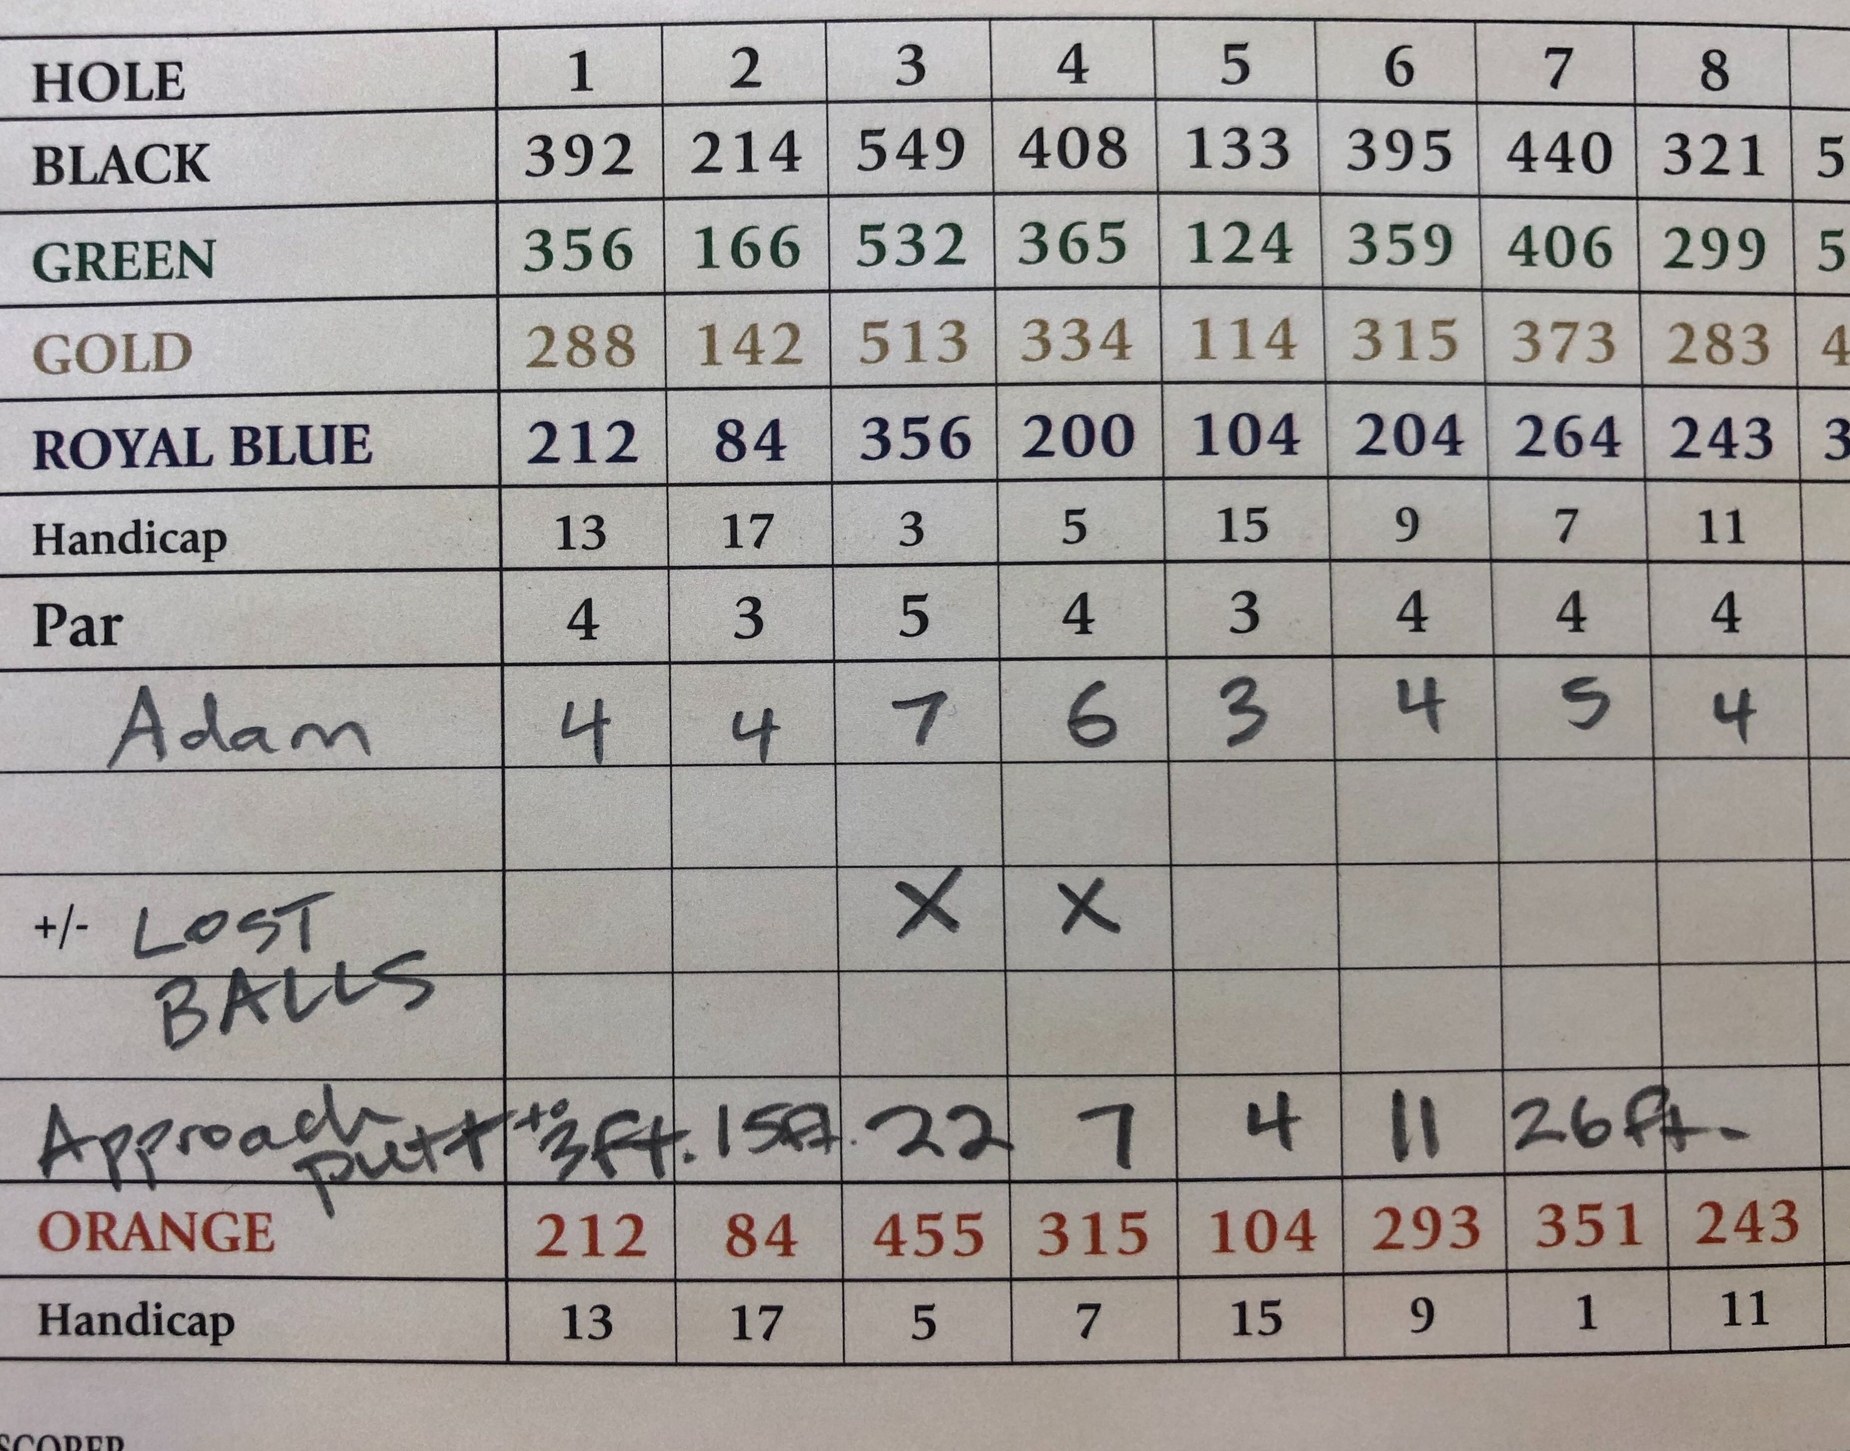 HOLE 1 2 3 4 5 6 7 8
BLACK 392 214 549 408 133 395 440 321 5
GREEN 356 166 532 365 124 359 406 299 5
GOLD 288 142 513 334 114 315 373 283 4
ROYAL BLUE 212 84 356 200 104 204 264 243 3
Handicap 13 17 3 5 15 9 7 11
Par 4 3 5 4 3 4 4 4
Adam 4 4 7 6 3 4 5 4
+/- LOST X X
BALLS
Approach
putt to 3ft. 15ft. 22 7 4 11 26ft.
ORANGE 212 84 455 315 104 293 351 243
Handicap 13 17 5 7 15 9 1 11
SCORER